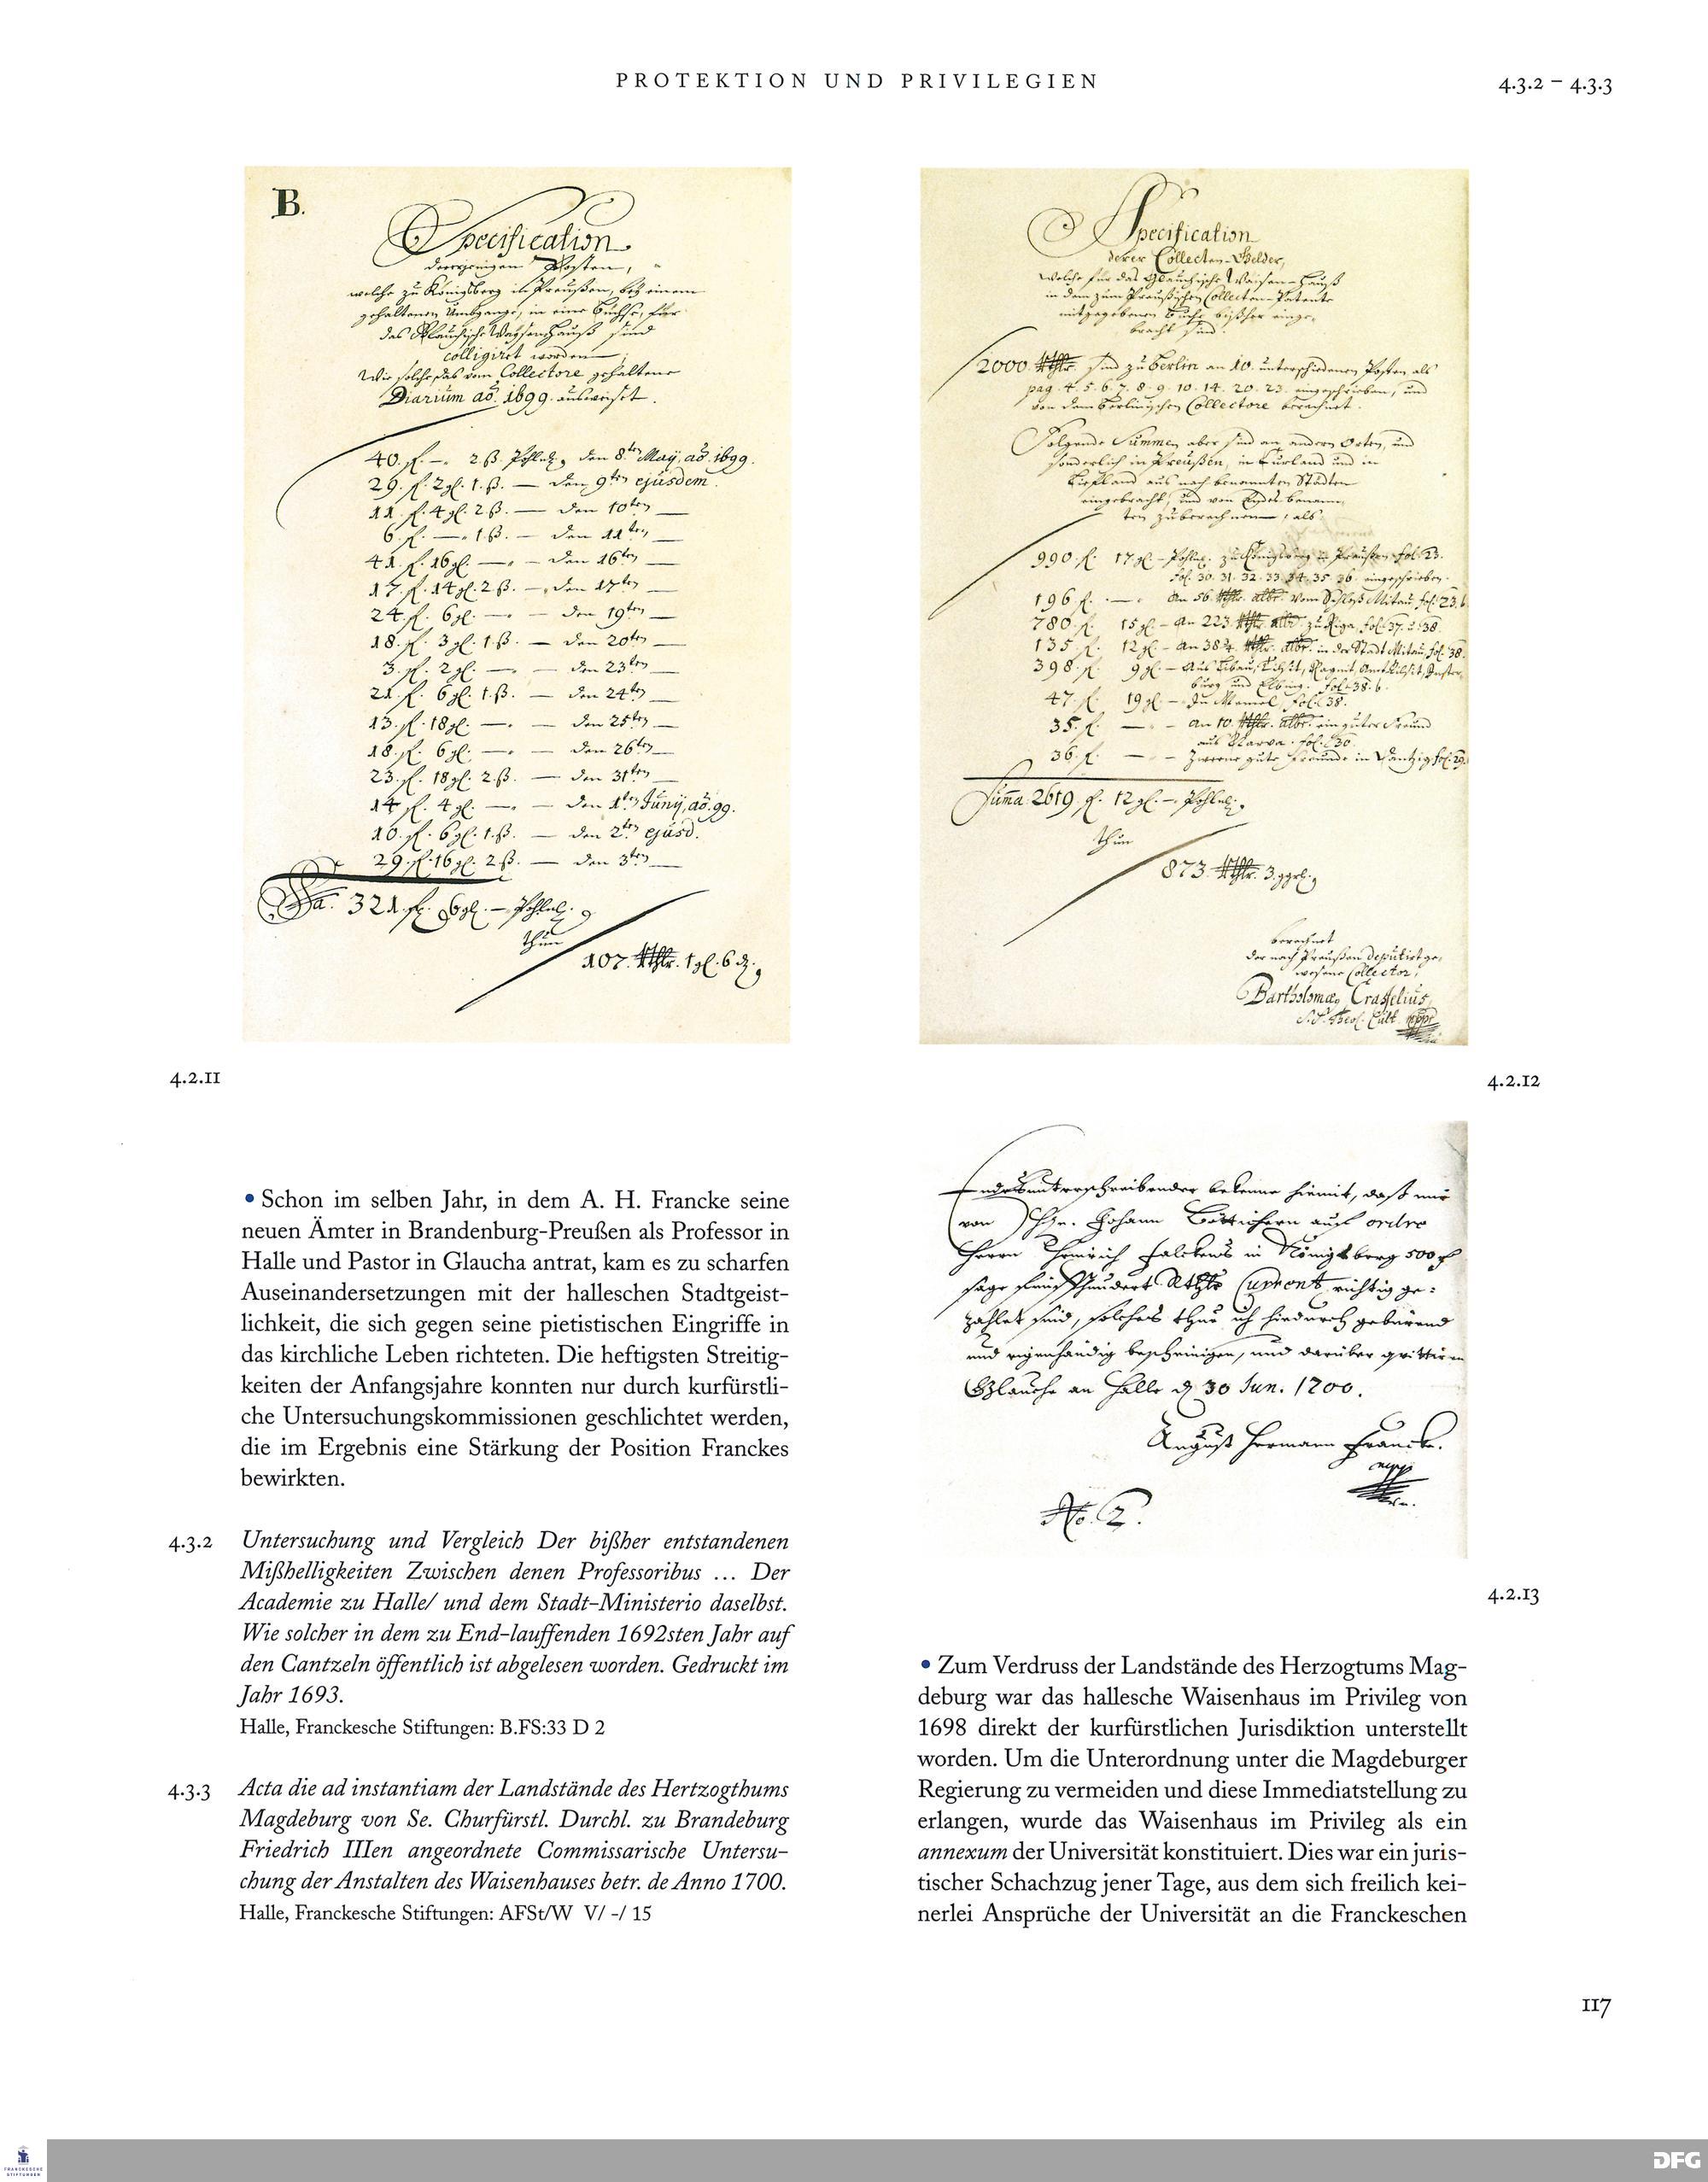 PROTEKTION UND PRIVILEGIEN
4.3.2 – 4.3.3
B.
Specification
derjenigen Posten,
welche zu Königsberg in Preußen, bey einem
gehaltenen Umbgange, in eine Büchse, für
das Glauchische Waysenhauß sind
colligiret worden
Wie solches das vom Collectore gehaltene
Diarium aō. 1699. ausweiset.
40. fl. — 2 ß. Pohln. den 8ten May, aō. 1699.
29. fl. 2 gl. 1. ß. — den 9ten ejusdem.
11. fl. 4 gl. 2 ß. — den 10ten —
6 fl. — 1 ß. — den 11ten —
41. fl. 16 gl. — — den 16ten —
17. fl. 14 gl. 2 ß. — den 17ten —
24. fl. 6 gl. — — den 19ten —
18. fl. 3 gl. 1 ß. — den 20ten —
3. fl. 2 gl. — — den 23ten —
21. fl. 6 gl. 1. ß. — den 24ten —
13. fl. 18 gl. — — den 25ten —
18. fl. 6 gl. — — den 26ten —
23. fl. 18 gl. 2 ß. — den 31ten —
14 fl. 4 gl. — — den 1ten Junij, aō. 99.
10. fl. 6 gl. 1. ß. — den 2ten ejusd.
29. fl. 16 gl. 2 ß. — den 3ten —
Sa. 321. fl. 6 gl. — Pohln.
thun
107. Rthlr. 1 gl. 6 d.
4.2.11
Specification
derer Collecten-Gelder,
welche für das Glauchische Waisen-Hauß
in dem zum Preußischen Collecten-Patente
mitgegebenen Buche bißher einge-
bracht sind.
2000 Rthlr. sind zu Berlin an 10. unterschiedenen Posten als
pag. 4. 5. 6. 7. 8. 9. 10. 14. 20. 23. eingeschrieben, und
von dem Berlinischen Collectore berechnet.
Folgende Summen aber sind an andern Orten, und
sonderlich in Preußen, in Curland und in
Liefland aus nach benannten Städten
eingebracht, und von Endes benann-
ten zu berechnen, als
990. fl. 17 gl. — Pohln. zu Königsberg in Preußen fol. 23.
fol. 30. 31. 32. 33. 34. 35. 36. eingeschrieben.
196 fl. — An 56. Rthlr. albr. vom Schloß Mitau, fol. 23. b.
780. fl. 15 gl. — An 223. Rthlr. albr. zu Riga, fol. 37. u. 38.
135. fl. 12 gl. — An 38¾. Rthlr. albr. in der Stadt Mitau, fol. 38.
398. fl. 9 gl. — Aus Libau, Tilsit, Ragnit, Amt Tilsit, Inster-
burg und Elbing. fol. 38. b.
47. fl. 19 gl. — Zu Memel, fol. 38.
35. fl. — — An 10. Rthlr. albr. ein guter Freund
aus Narva. fol. 30.
36. fl. — — Zweene gute Freunde in Dantzig, fol. 29.
Summa 2619. fl. 12 gl. — Pohln.
thun
873. Rthlr. 3. ggrl.
berechnet
der nach Preußen deputirt ge-
wesene Collector,
Bartholomæ Crasselius,
S. S. Theol. Cult mppr
4.2.12
Endesunterschreibender bekenne hiemit, daß mir
von Hr. Johann Böttichern auf ordre
Herrn Heinrich Falckens in Königsberg 500
sage fünffhundert Rthlr Current richtig ge-
zahlet sind, solches thue ich hiedurch gebürend
und eigenhändig bescheinigen, und darüber quittiren
Glaucha an Halle d 30 Jun. 1700.
August Hermann Francke.
mppr
No. 2.
4.2.13
• Schon im selben Jahr, in dem A. H. Francke seine
neuen Ämter in Brandenburg-Preußen als Professor in
Halle und Pastor in Glaucha antrat, kam es zu scharfen
Auseinandersetzungen mit der halleschen Stadtgeist-
lichkeit, die sich gegen seine pietistischen Eingriffe in
das kirchliche Leben richteten. Die heftigsten Streitig-
keiten der Anfangsjahre konnten nur durch kurfürstli-
che Untersuchungskommissionen geschlichtet werden,
die im Ergebnis eine Stärkung der Position Franckes
bewirkten.
4.3.2 Untersuchung und Vergleich Der bißher entstandenen
Mißhelligkeiten Zwischen denen Professoribus … Der
Academie zu Halle/ und dem Stadt-Ministerio daselbst.
Wie solcher in dem zu End-lauffenden 1692sten Jahr auf
den Cantzeln öffentlich ist abgelesen worden. Gedruckt im
Jahr 1693.
Halle, Franckesche Stiftungen: B.FS:33 D 2
4.3.3 Acta die ad instantiam der Landstände des Hertzogthums
Magdeburg von Se. Churfürstl. Durchl. zu Brandeburg
Friedrich IIIen angeordnete Commissarische Untersu-
chung der Anstalten des Waisenhauses betr. de Anno 1700.
Halle, Franckesche Stiftungen: AFSt/W V/ -/ 15
• Zum Verdruss der Landstände des Herzogtums Mag-
deburg war das hallesche Waisenhaus im Privileg von
1698 direkt der kurfürstlichen Jurisdiktion unterstellt
worden. Um die Unterordnung unter die Magdeburger
Regierung zu vermeiden und diese Immediatstellung zu
erlangen, wurde das Waisenhaus im Privileg als ein
annexum der Universität konstituiert. Dies war ein juris-
tischer Schachzug jener Tage, aus dem sich freilich kei-
nerlei Ansprüche der Universität an die Franckeschen
117
FRANCKESCHE
STIFTUNGEN
DFG